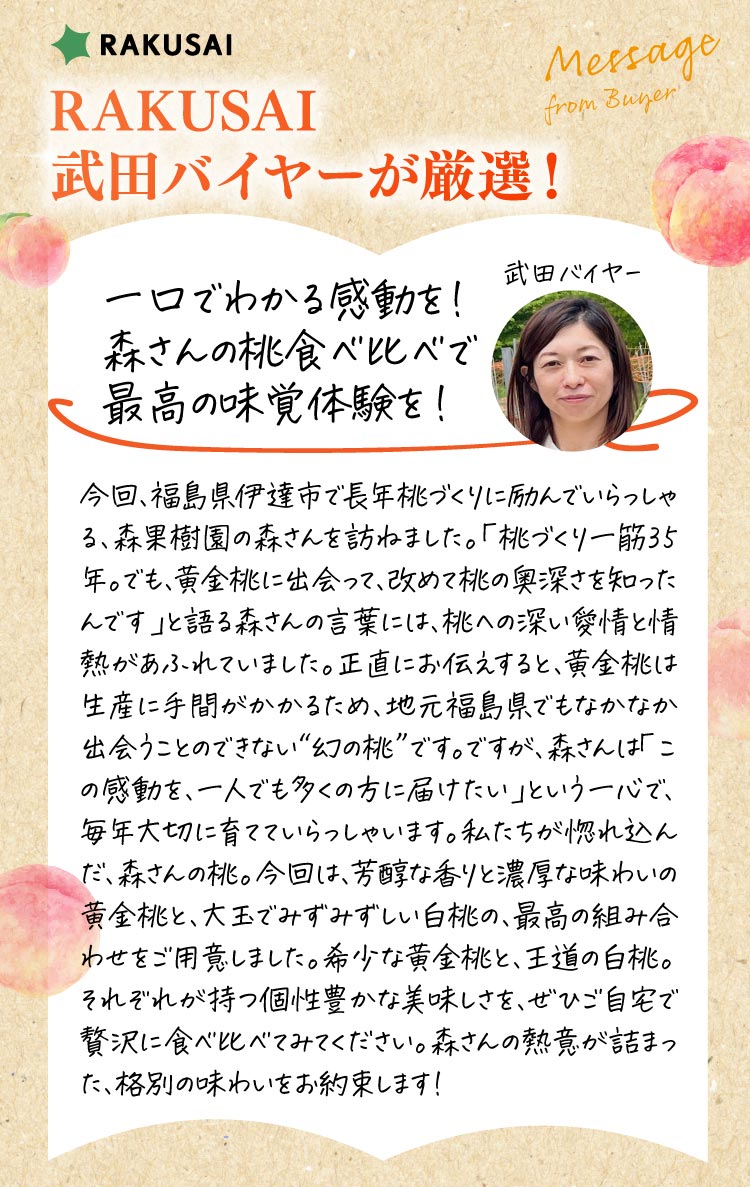 RAKUSAI
Message
from Buyer
RAKUSAI
武田バイヤーが厳選！
武田バイヤー
一口でわかる感動を！
森さんの桃食べ比べで
最高の味覚体験を！
今回、福島県伊達市で長年桃づくりに励んでいらっしゃ
る、森果樹園の森さんを訪ねました。「桃づくり一筋35
年。でも、黄金桃に出会って、改めて桃の奥深さを知った
んです」と語る森さんの言葉には、桃への深い愛情と情
熱があふれていました。正直にお伝えすると、黄金桃は
生産に手間がかかるため、地元福島県でもなかなか
出会うことのできない“幻の桃”です。ですが、森さんは「こ
の感動を、一人でも多くの方に届けたい」という一心で、
毎年大切に育てていらっしゃいます。私たちが惚れ込ん
だ、森さんの桃。今回は、芳醇な香りと濃厚な味わいの
黄金桃と、大玉でみずみずしい白桃の、最高の組み合
わせをご用意しました。希少な黄金桃と、王道の白桃。
それぞれが持つ個性豊かな美味しさを、ぜひご自宅で
贅沢に食べ比べてみてください。森さんの熱意が詰まっ
た、格別の味わいをお約束します！